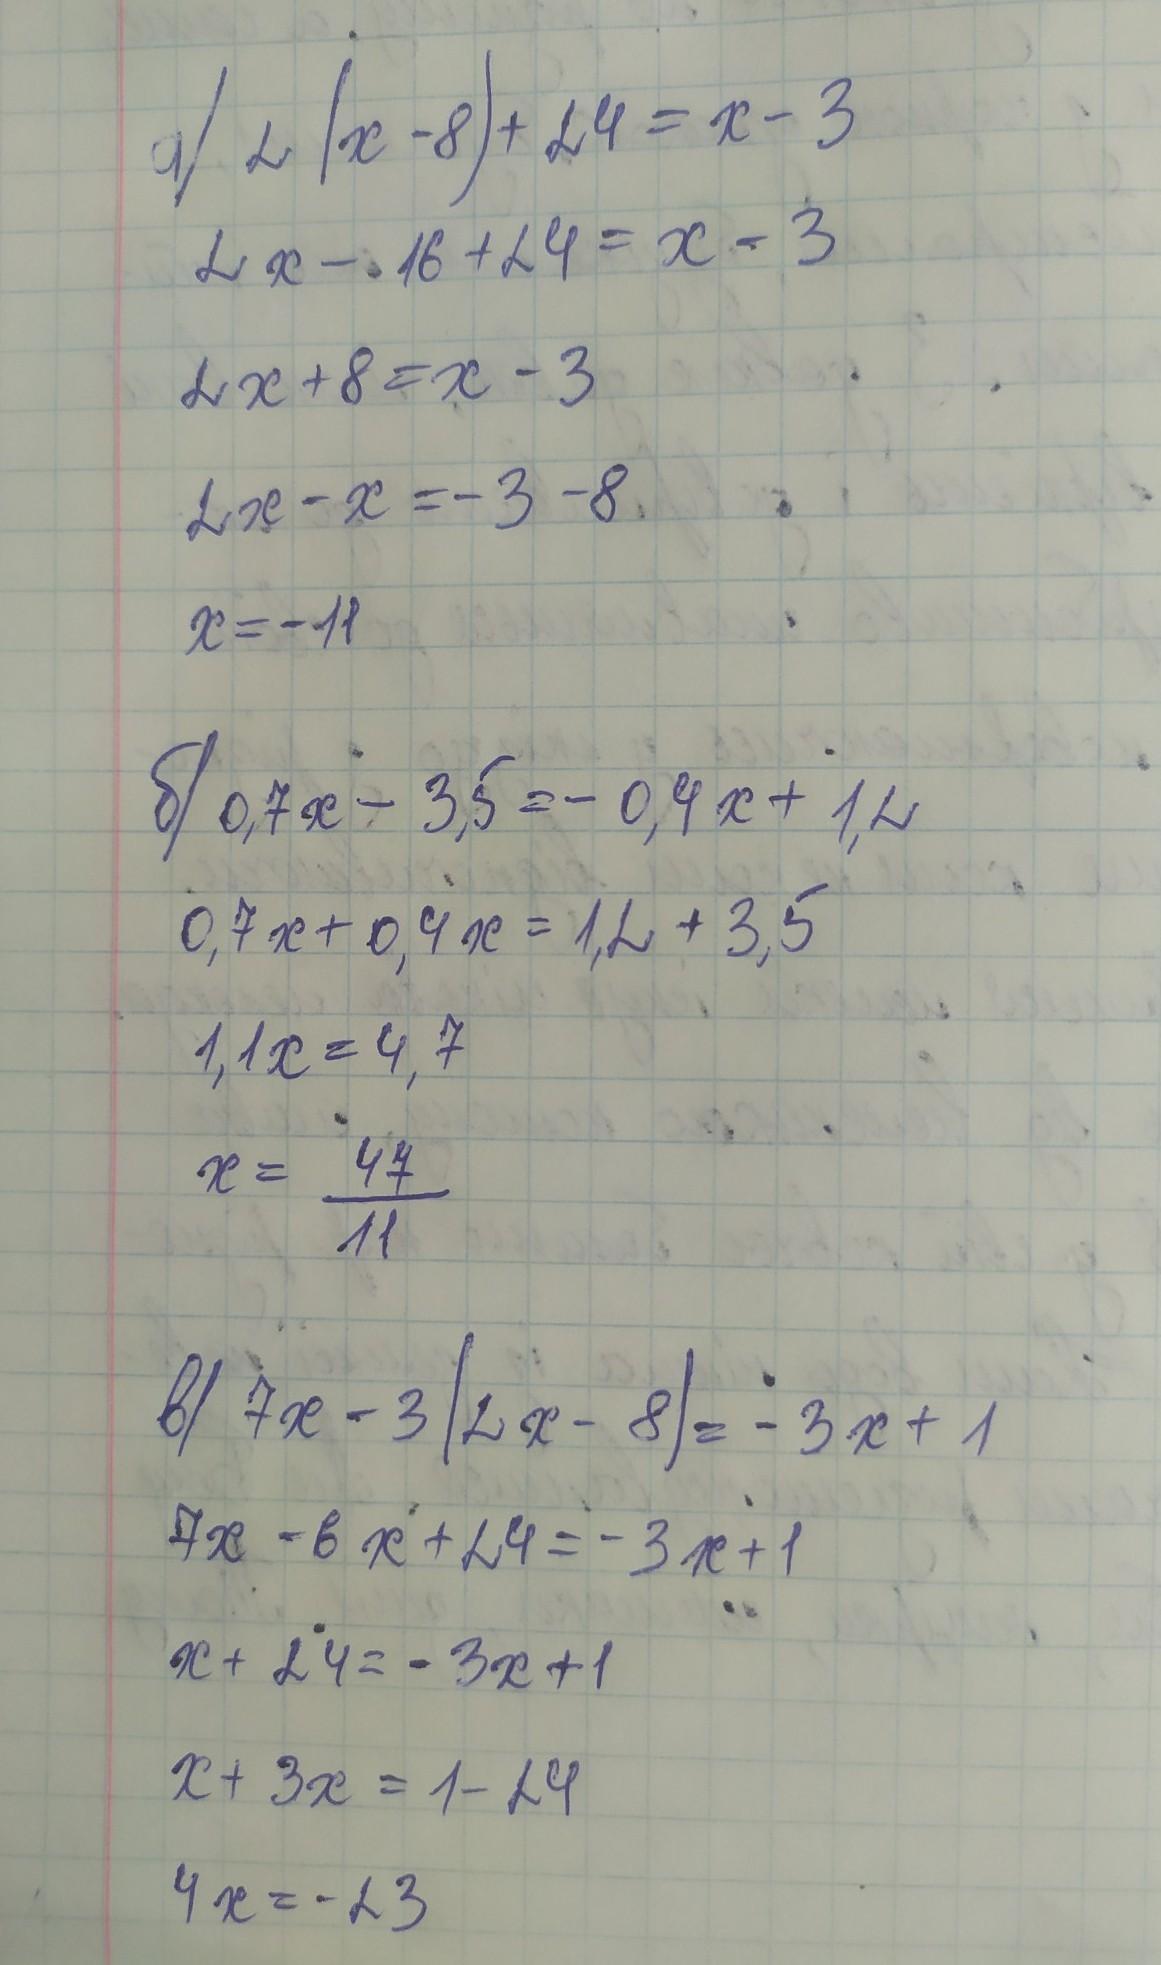 а) 2(x-8)+24=x-3
2x-16+24=x-3
2x+8=x-3
2x-x=-3-8
x=-11
б) 0,7x-3,5=-0,4x+1,2
0,7x+0,4x=1,2+3,5
1,1x=4,7
x=47/11
в) 7x-3(2x-8)=-3x+1
7x-6x+24=-3x+1
x+24=-3x+1
x+3x=1-24
4x=-23